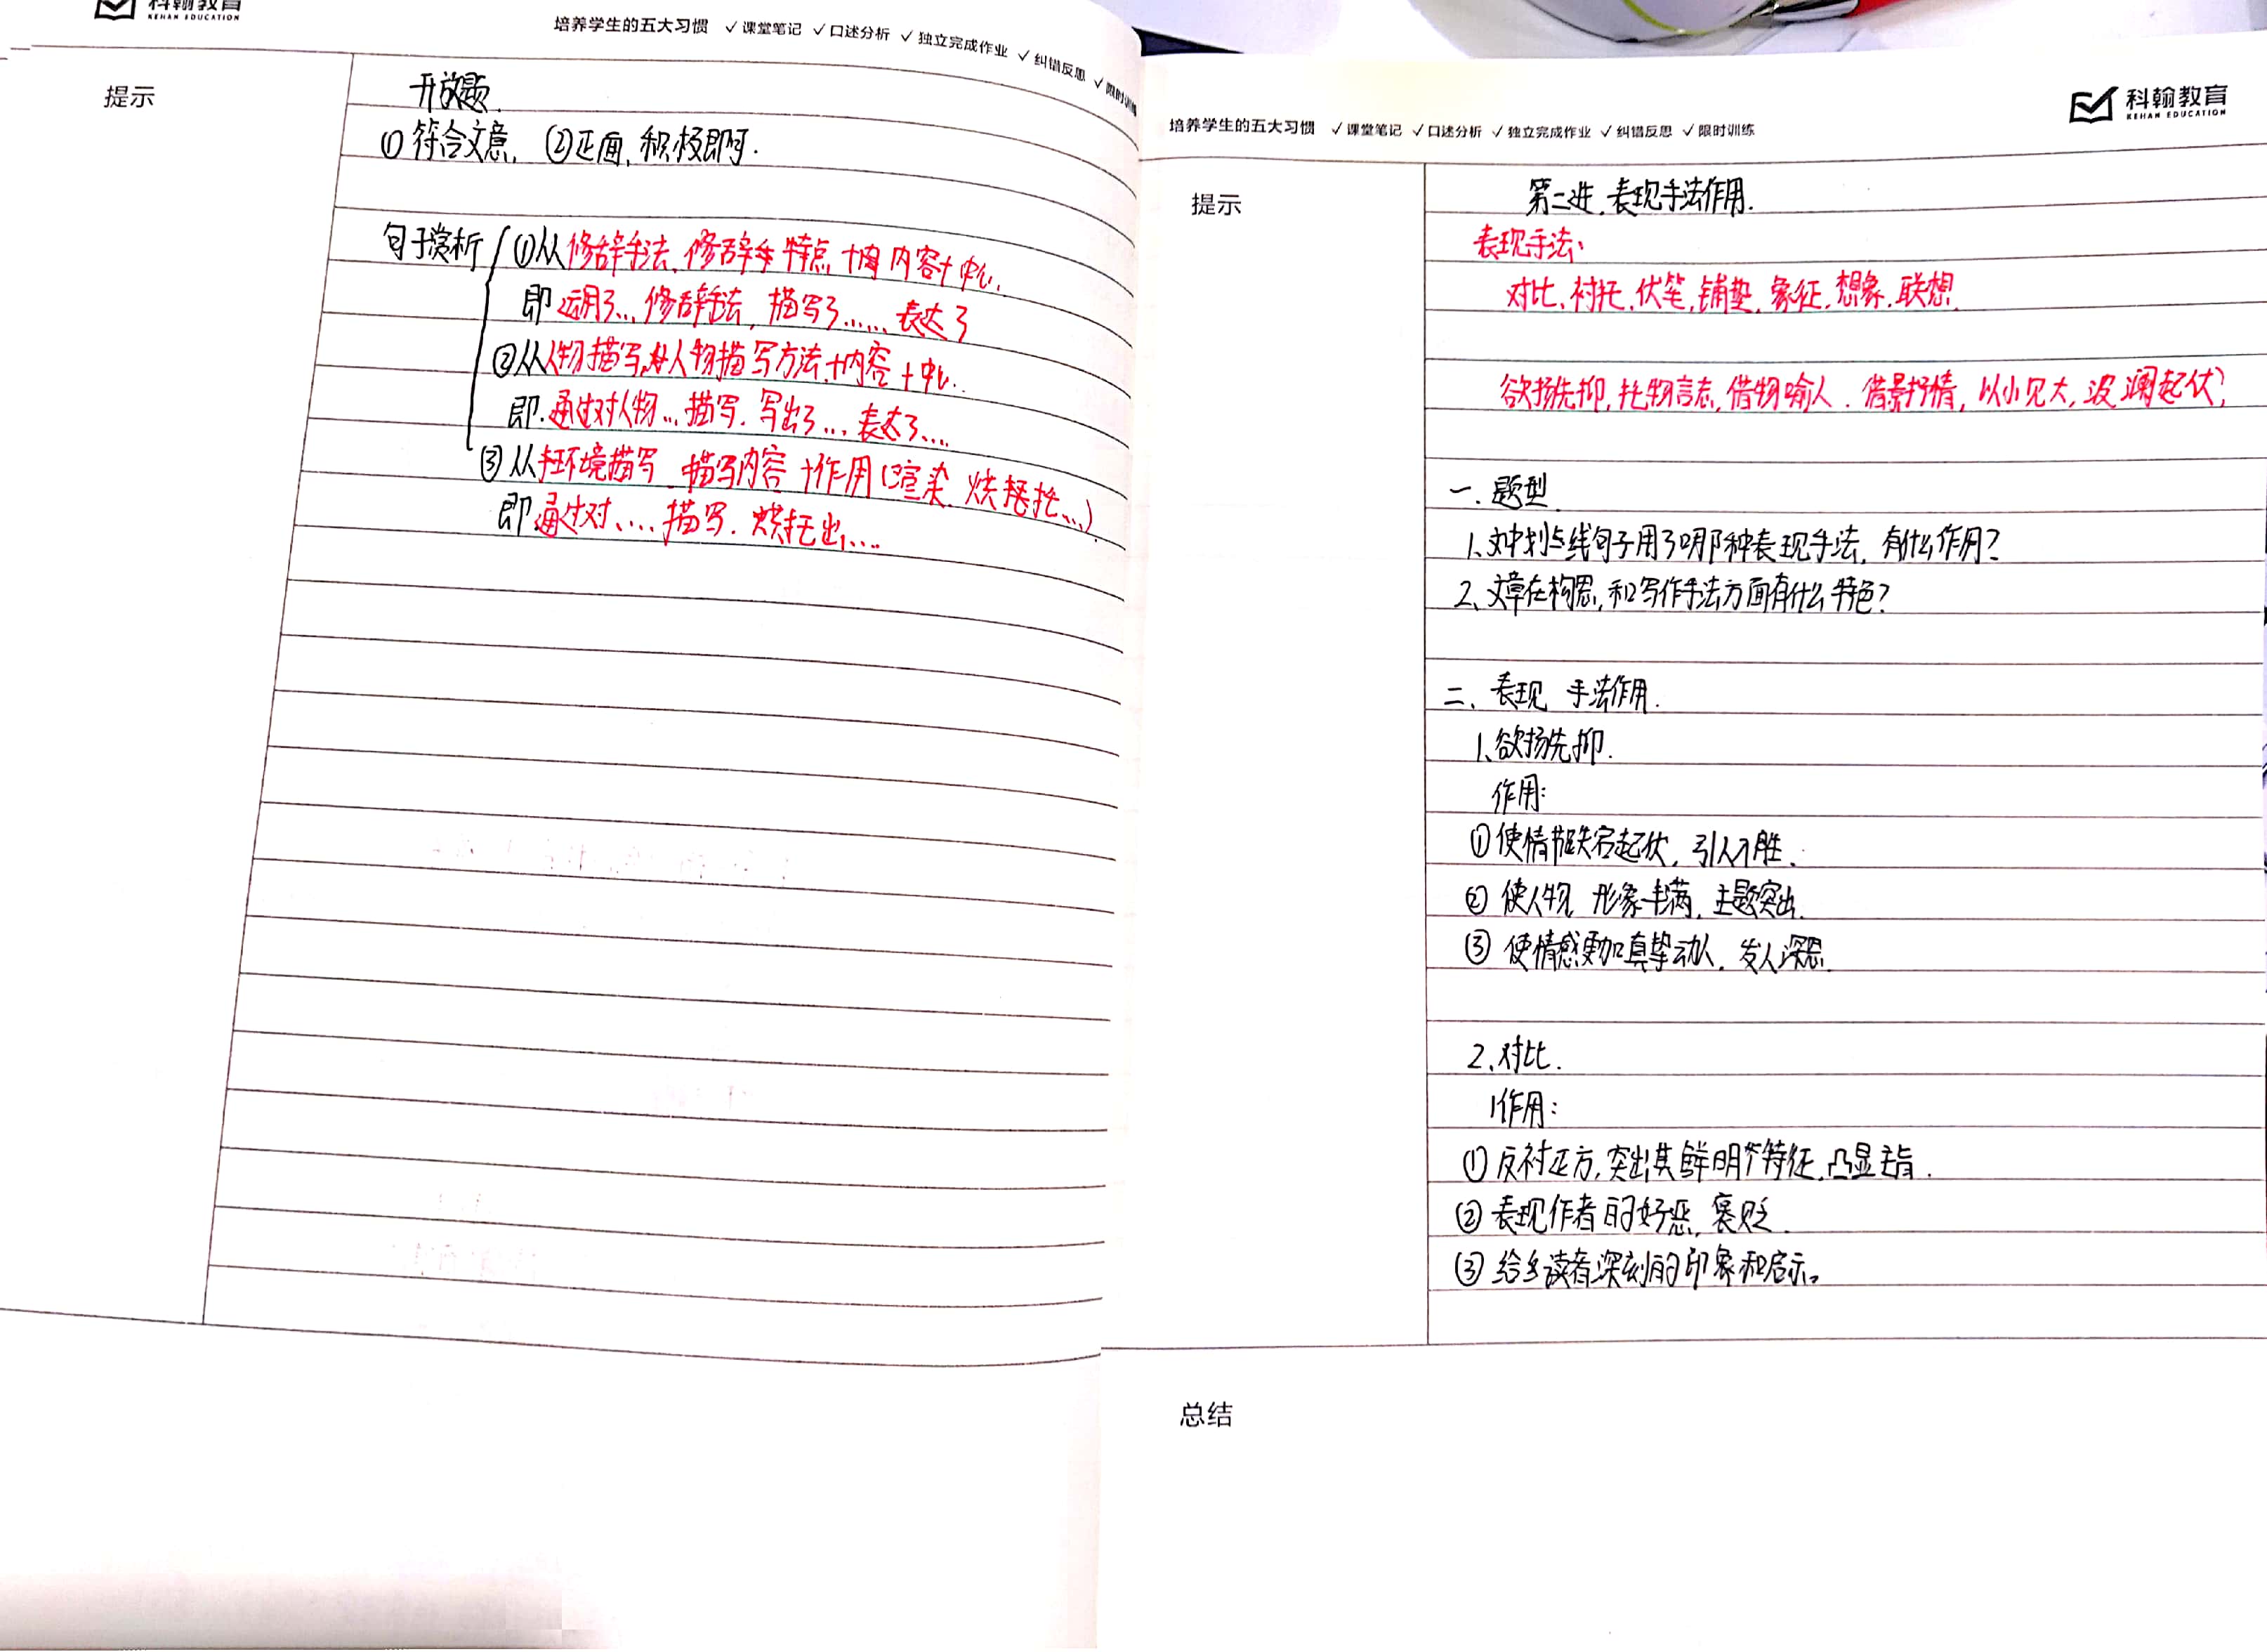 科翰教育
KEHAN EDUCATION
培养学生的五大习惯 ✓课堂笔记 ✓口述分析 ✓独立完成作业 ✓纠错反思 ✓限时训练
提示
开放题.
①符合文意, ②正面,积极即可.
句子赏析
①从修辞手法,修辞手特点+内容+中心.
即运用了...修辞手法,描写了......表达了
②从人物描写,人物描写方法+内容+中心.
即.通过对人物...描写.写出了...表达了....
③从环境描写 描写内容+作用(渲染 烘托...)
即通过对....描写.烘托出....
科翰教育
KEHAN EDUCATION
培养学生的五大习惯 ✓课堂笔记 ✓口述分析 ✓独立完成作业 ✓纠错反思 ✓限时训练
提示
第二讲.表现手法作用.
表现手法:
对比、衬托、伏笔,铺垫,象征.想象.联想
欲扬先抑,托物言志,借物喻人.借景抒情,以小见大,波澜起伏;
一.题型
1、文中划线句子用了哪种表现手法,有什么作用?
2、文章在构思,和写作手法方面有什么特色?
二、表现 手法作用.
1、欲扬先抑.
作用:
①使情节跌宕起伏,引人入胜.
②使人物 形象丰满,主题突出.
③使情感更加真挚动人.发人深思.
2、对比.
作用:
①反衬正方,突出其鲜明个特征,凸显主旨.
②表现作者的好恶,褒贬.
③给读者深刻的印象和启示。
总结